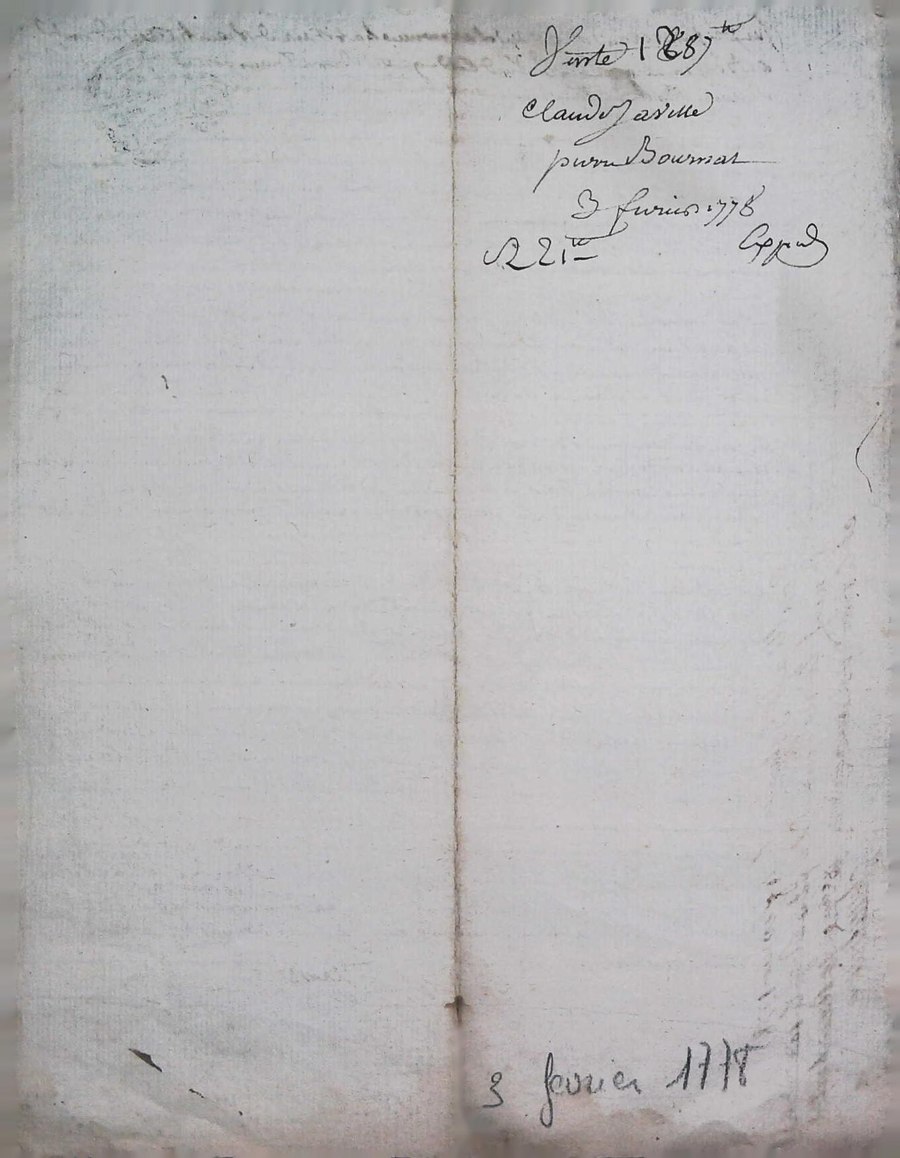 Vente 1687 tt
Claude Javelle
pierre Bournat
3 fevrier 1778
R 21 tt
Exped
3 fevrier 1778